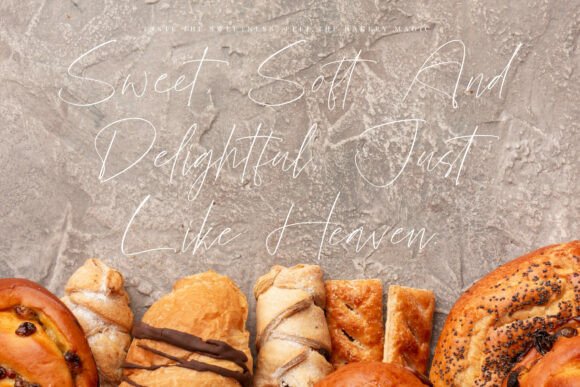 TASTE THE SWEETNESS, FEEL THE BAKERY MAGIC
Sweet, Soft And
Delightful Just
Like Heaven.